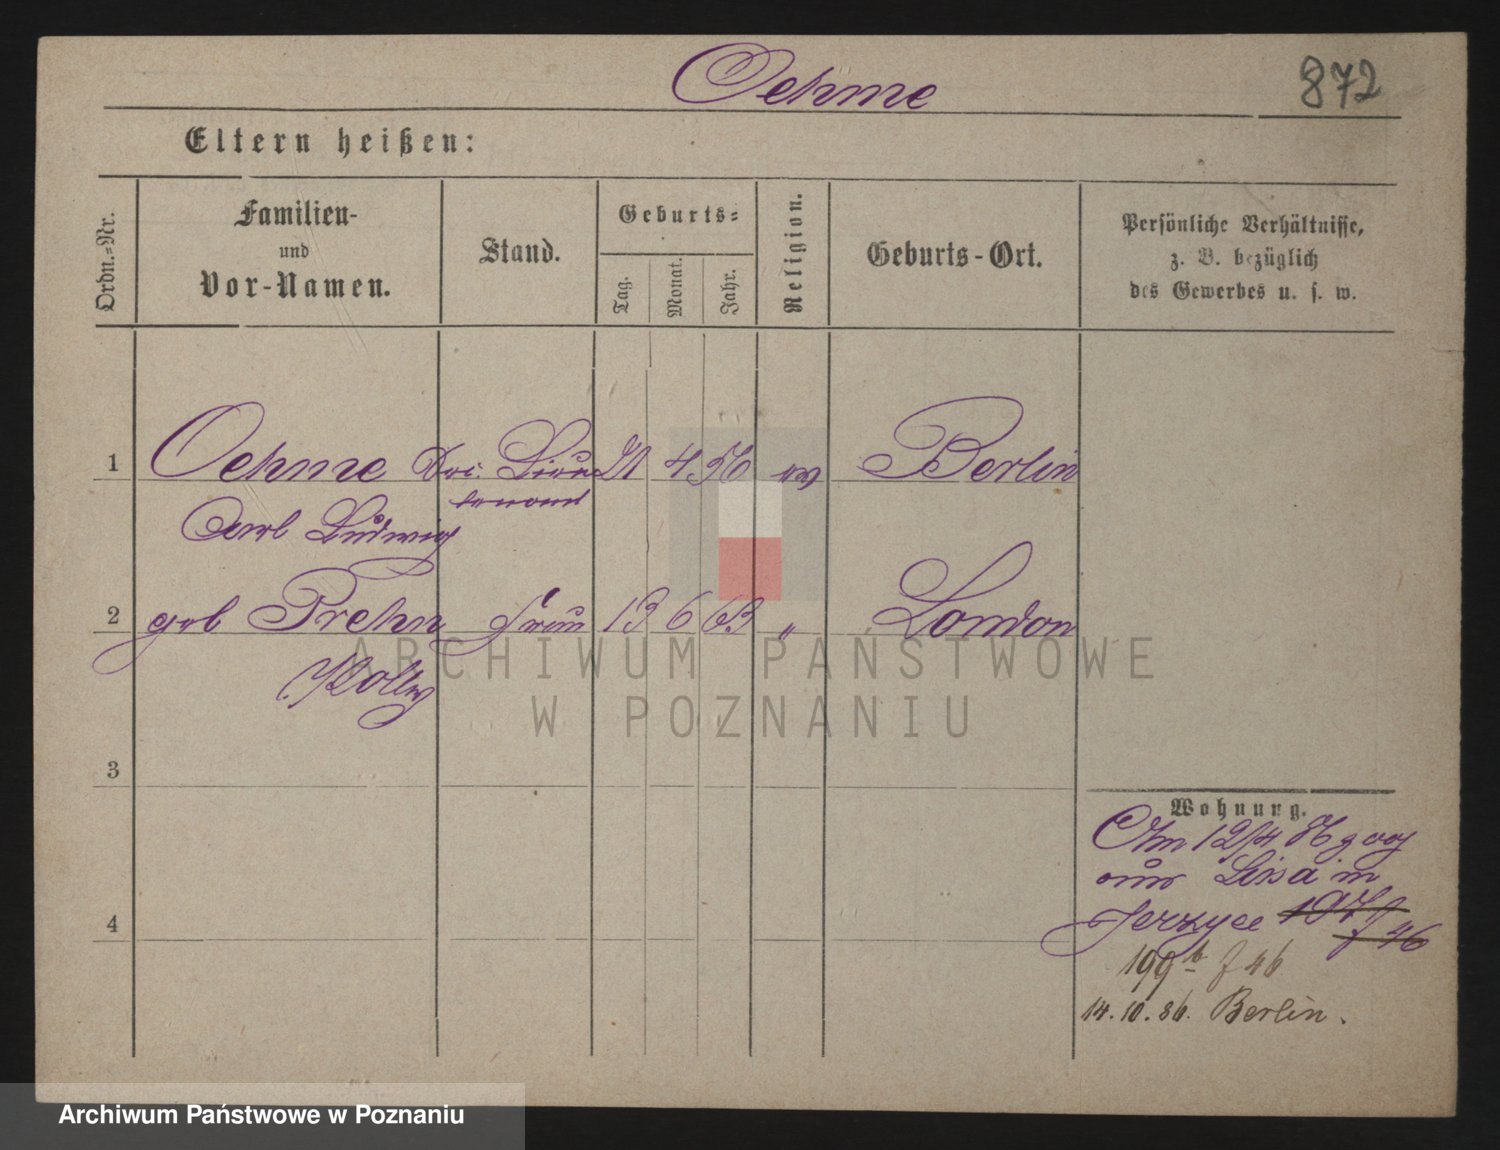 Oehme
872
Eltern heißen:
Ordn.-Nr.
Familien-
und
Vor-Namen.
Stand.
Geburts-
Tag.
Monat.
Jahr.
Religion.
Geburts-Ort.
Persönliche Verhältnisse,
z. B. bezüglich
des Gewerbes u. s. w.
1 Oehme 21 4 56 Berlin
Carl Ludwig
2 geb Prehn Frau 13 6 63 " London
ARCHIWUM PAŃSTWOWE
W POZNANIU
3
Wohnung.
Am 12/4 86
aus Lissa in
Jerzyce 197
4
f 46
199 b f 46
14. 10. 86. Berlin.
Archiwum Państwowe w Poznaniu